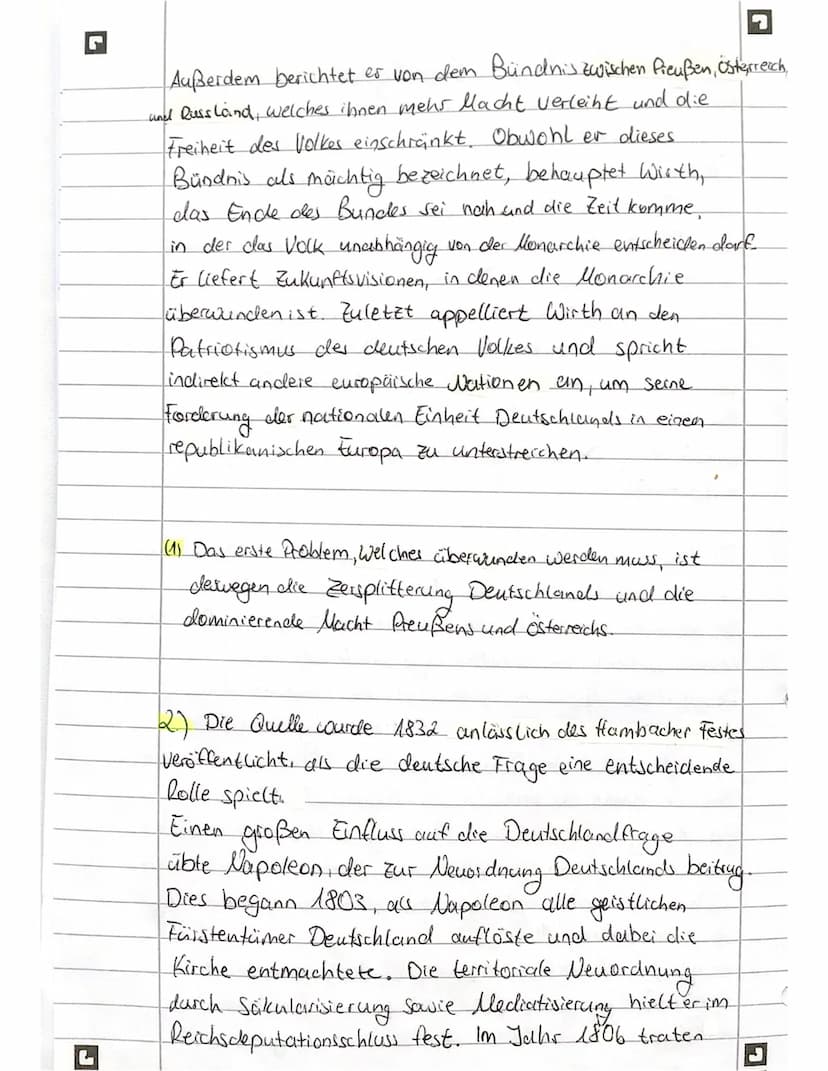 Außerdem berichtet er von dem Bündnis zwischen Preußen, Österreich,
und Russland, welches ihnen mehr Macht verleiht und die
Freiheit des Volkes einschränkt. Obwohl er dieses
Bündnis als mächtig bezeichnet, behauptet Wirth,
das Ende des Bundes sei nah und die Zeit komme,
in der das Volk unabhängig von der Monarchie entscheiden darf.
Er liefert Zukunftsvisionen, in denen die Monarchie
überwunden ist. Zuletzt appelliert Wirth an den
Patriotismus des deutschen Volkes und spricht
indirekt andere europäische Nationen an, um seine
Forderung der nationalen Einheit Deutschlands in einem
republikanischen Europa zu unterstreichen.
(1) Das erste Problem, welches überwunden werden muss, ist
deswegen die Zersplitterung Deutschlands und die
dominierende Macht Preußens und Österreichs.
2.) Die Quelle wurde 1832 anlässlich des Hambacher Festes
veröffentlicht, als die deutsche Frage eine entscheidende
Rolle spielt.
Einen großen Einfluss auf die Deutschlandfrage
übte Napoleon, der zur Neuordnung Deutschlands beitrug.
Dies begann 1803, als Napoleon alle geistlichen
Fürstentümer Deutschland auflöste und dabei die
Kirche entmachtete. Die territoriale Neuordnung
durch Säkularisierung sowie Mediatisierung hielt er im
Reichsdeputationsschluss fest. Im Jahr 1806 traten